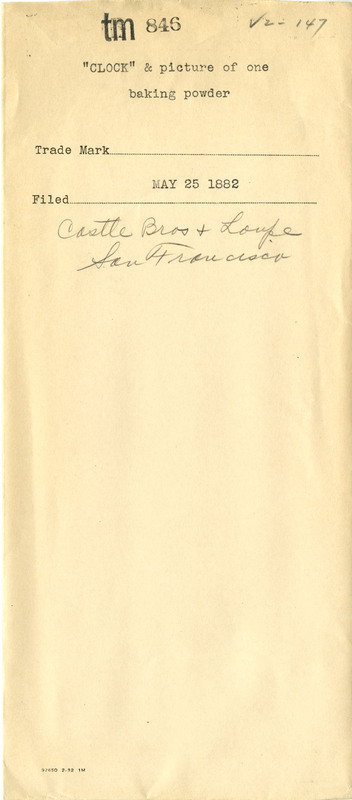 tm 846 V2-147
"CLOCK" & picture of one
baking powder
Trade Mark
MAY 25 1882
Filed
Castle Bros + Loupe
San Francisco
2-52 1M